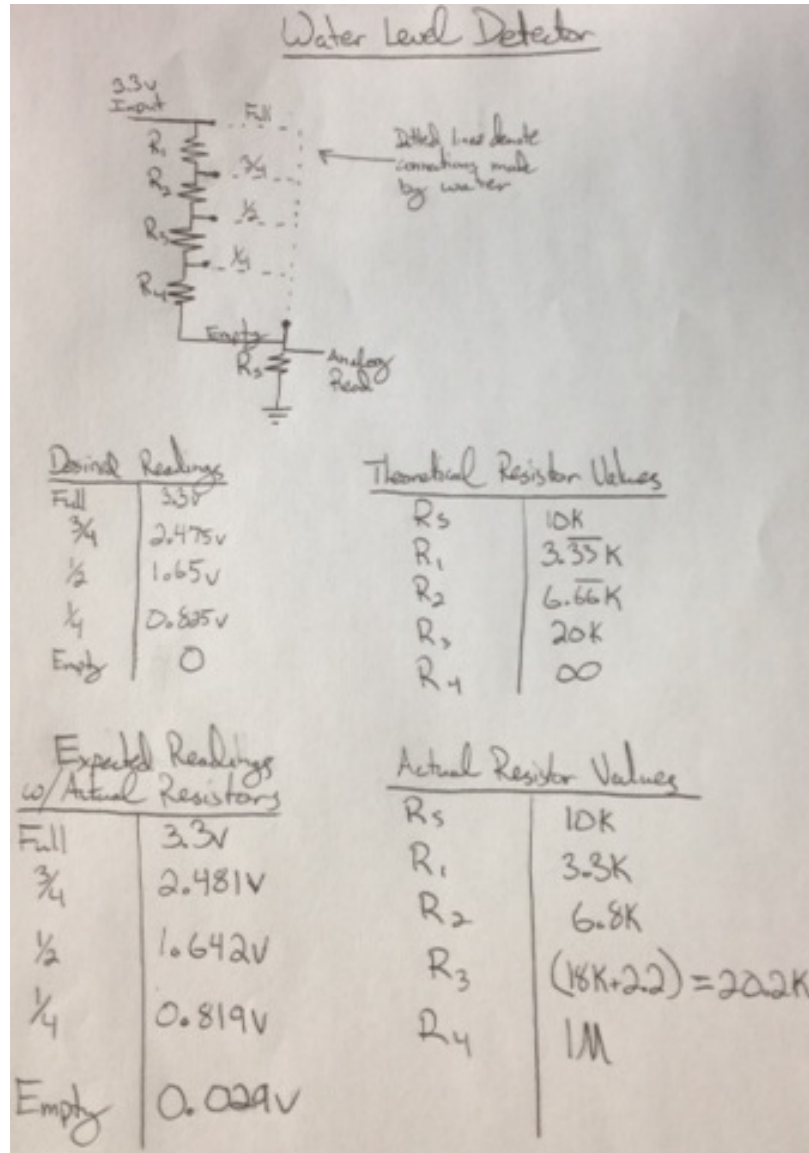 Water Level Detector
3.3v
Input
Full
R1
3/4
R2
1/2
R3
1/4
R4
Dotted lines denote
connections made
by water
Empty
R5
Analog
Read
Desired Readings
Full 3.3v
3/4 2.475v
1/2 1.65v
1/4 0.825v
Empty 0
Theoretical Resistor Values
R5 10K
R1 3.33K
R2 6.66K
R3 20K
R4 ∞
Expected Readings
w/ Actual Resistors
Full 3.3v
3/4 2.481v
1/2 1.642v
1/4 0.819v
Empty 0.029v
Actual Resistor Values
R5 10K
R1 3.3K
R2 6.8K
R3 (18K+2.2)=20.2K
R4 1M